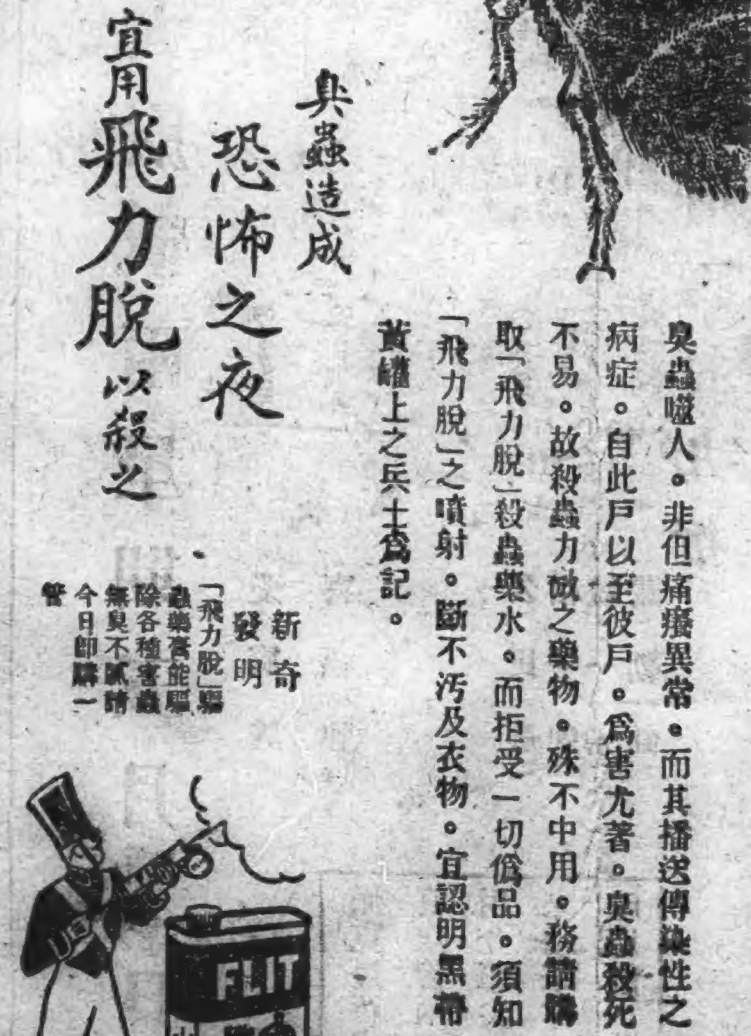 臭蟲噬人。非但痛癢異常。而其播送傳染性之
病症。自此戶以至彼戶。爲害尤著。臭蟲殺死
不易。故殺蟲力微之藥物。殊不中用。務請購
取「飛力脫」殺蟲藥水。而拒受一切僞品。須知
「飛力脫」之噴射。斷不汚及衣物。宜認明黑帶
黃罐上之兵士爲記。
臭蟲造成
恐怖之夜
宜用飛力脫以殺之
新奇
發明
「飛力脫」驅
蟲藥膏能驅
除各種害蟲
無臭不膩請
今日卽購一
管
FLIT